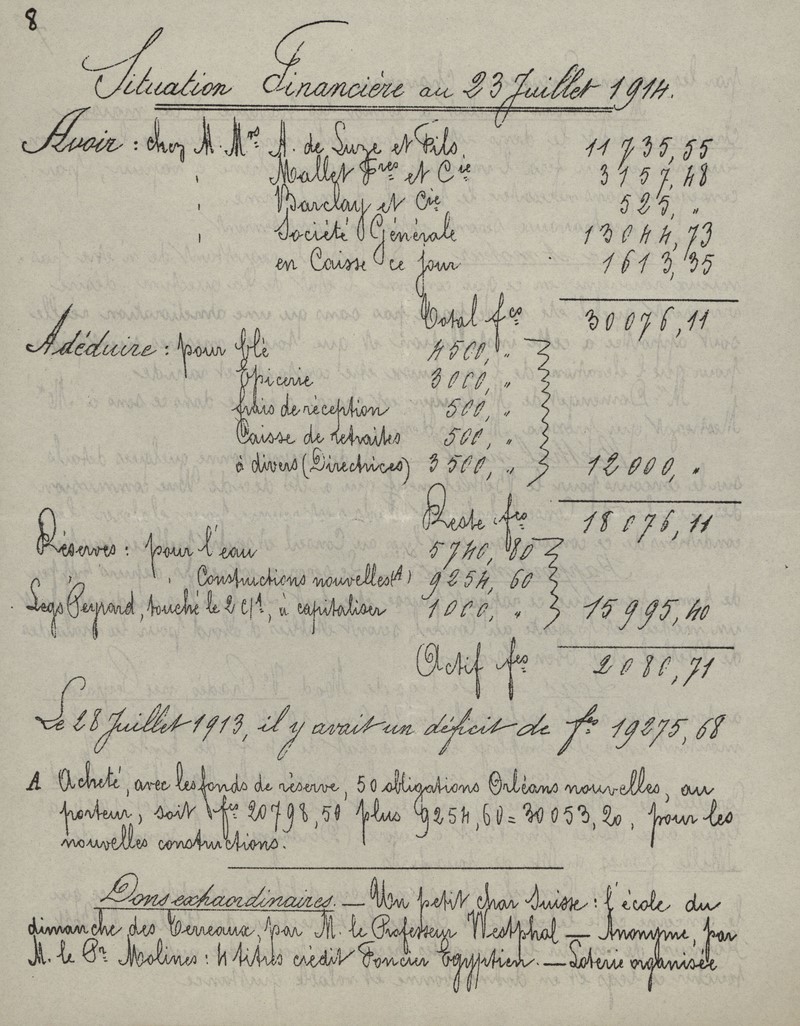 8
Situation Financière au 23 Juillet 1914.
Avoir : chez M. Mrs A. de Luze et Fils. 11 735,55
" Mallet Fres et Cie 3 157,48
" Barclay et Cie 525, "
" Société Générale 13 044,73
en Caisse ce jour 1 613,35
Total fcs 30 076,11
A déduire : pour blé 4 500, "
Epicerie 3 000, "
frais de réception 500, "
Caisse de retraites 500, "
à divers (Directrices) 3 500, " 12 000, "
Reste fcs 18 076,11
Réserves : pour l'eau 5 740, 80
" Constructions nouvelles (A) 9 254, 60
Legs Peyrard, touché le 2 ct, à capitaliser 1 000, " 15 995,40
Actif fcs 2 080,71
Le 28 Juillet 1913, il y avait un déficit de fcs 19 275,68
A Acheté, avec les fonds de réserve, 50 obligations Orléans nouvelles, au
porteur, soit fcs 20 798,50 plus 9 254,60 = 30 053,20, pour les
nouvelles constructions.
Dons extraordinaires. — Un petit char Suisse : l'école du
dimanche des Terreaux, par M. le Professeur Westphal — Anonyme, par
M. le Pr Molines : 4 titres crédit Foncier Egyptien. — Loterie organisée